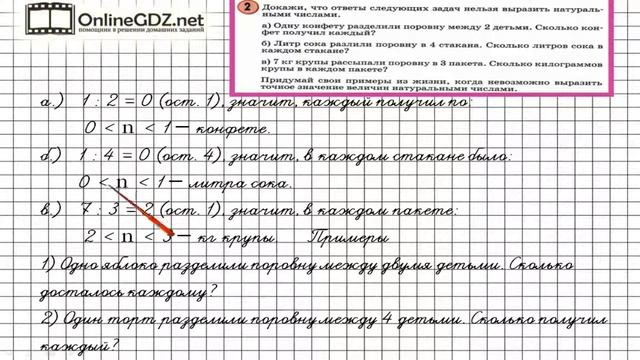 OnlineGDZ.com
помощник в решении домашних заданий
2 Докажи, что ответы следующих задач нельзя выразить натураль-
ными числами.
а) Одну конфету разделили поровну между 2 детьми. Сколько кон-
фет получил каждый?
б) Литр сока разлили поровну в 4 стакана. Сколько литров сока в
каждом стакане?
в) 7 кг крупы рассыпали поровну в 3 пакета. Сколько килограммов
крупы в каждом пакете?
Придумай свои примеры из жизни, когда невозможно выразить
точное значение величин натуральными числами.
а.) 1 : 2 = 0 (ост. 1), значит, каждый получил по:
0 < n < 1 – конфете.
б.) 1 : 4 = 0 (ост. 4), значит, в каждом стакане было:
0 < n < 1 – литра сока.
в.) 7 : 3 = 2 (ост. 1), значит, в каждом пакете:
2 < n < 3 – кг крупы. Примеры
1) Одно яблоко разделили поровну между двумя детьми. Сколько
досталось каждому?
2) Один торт разделили поровну между 4 детьми. Сколько получил
каждый?